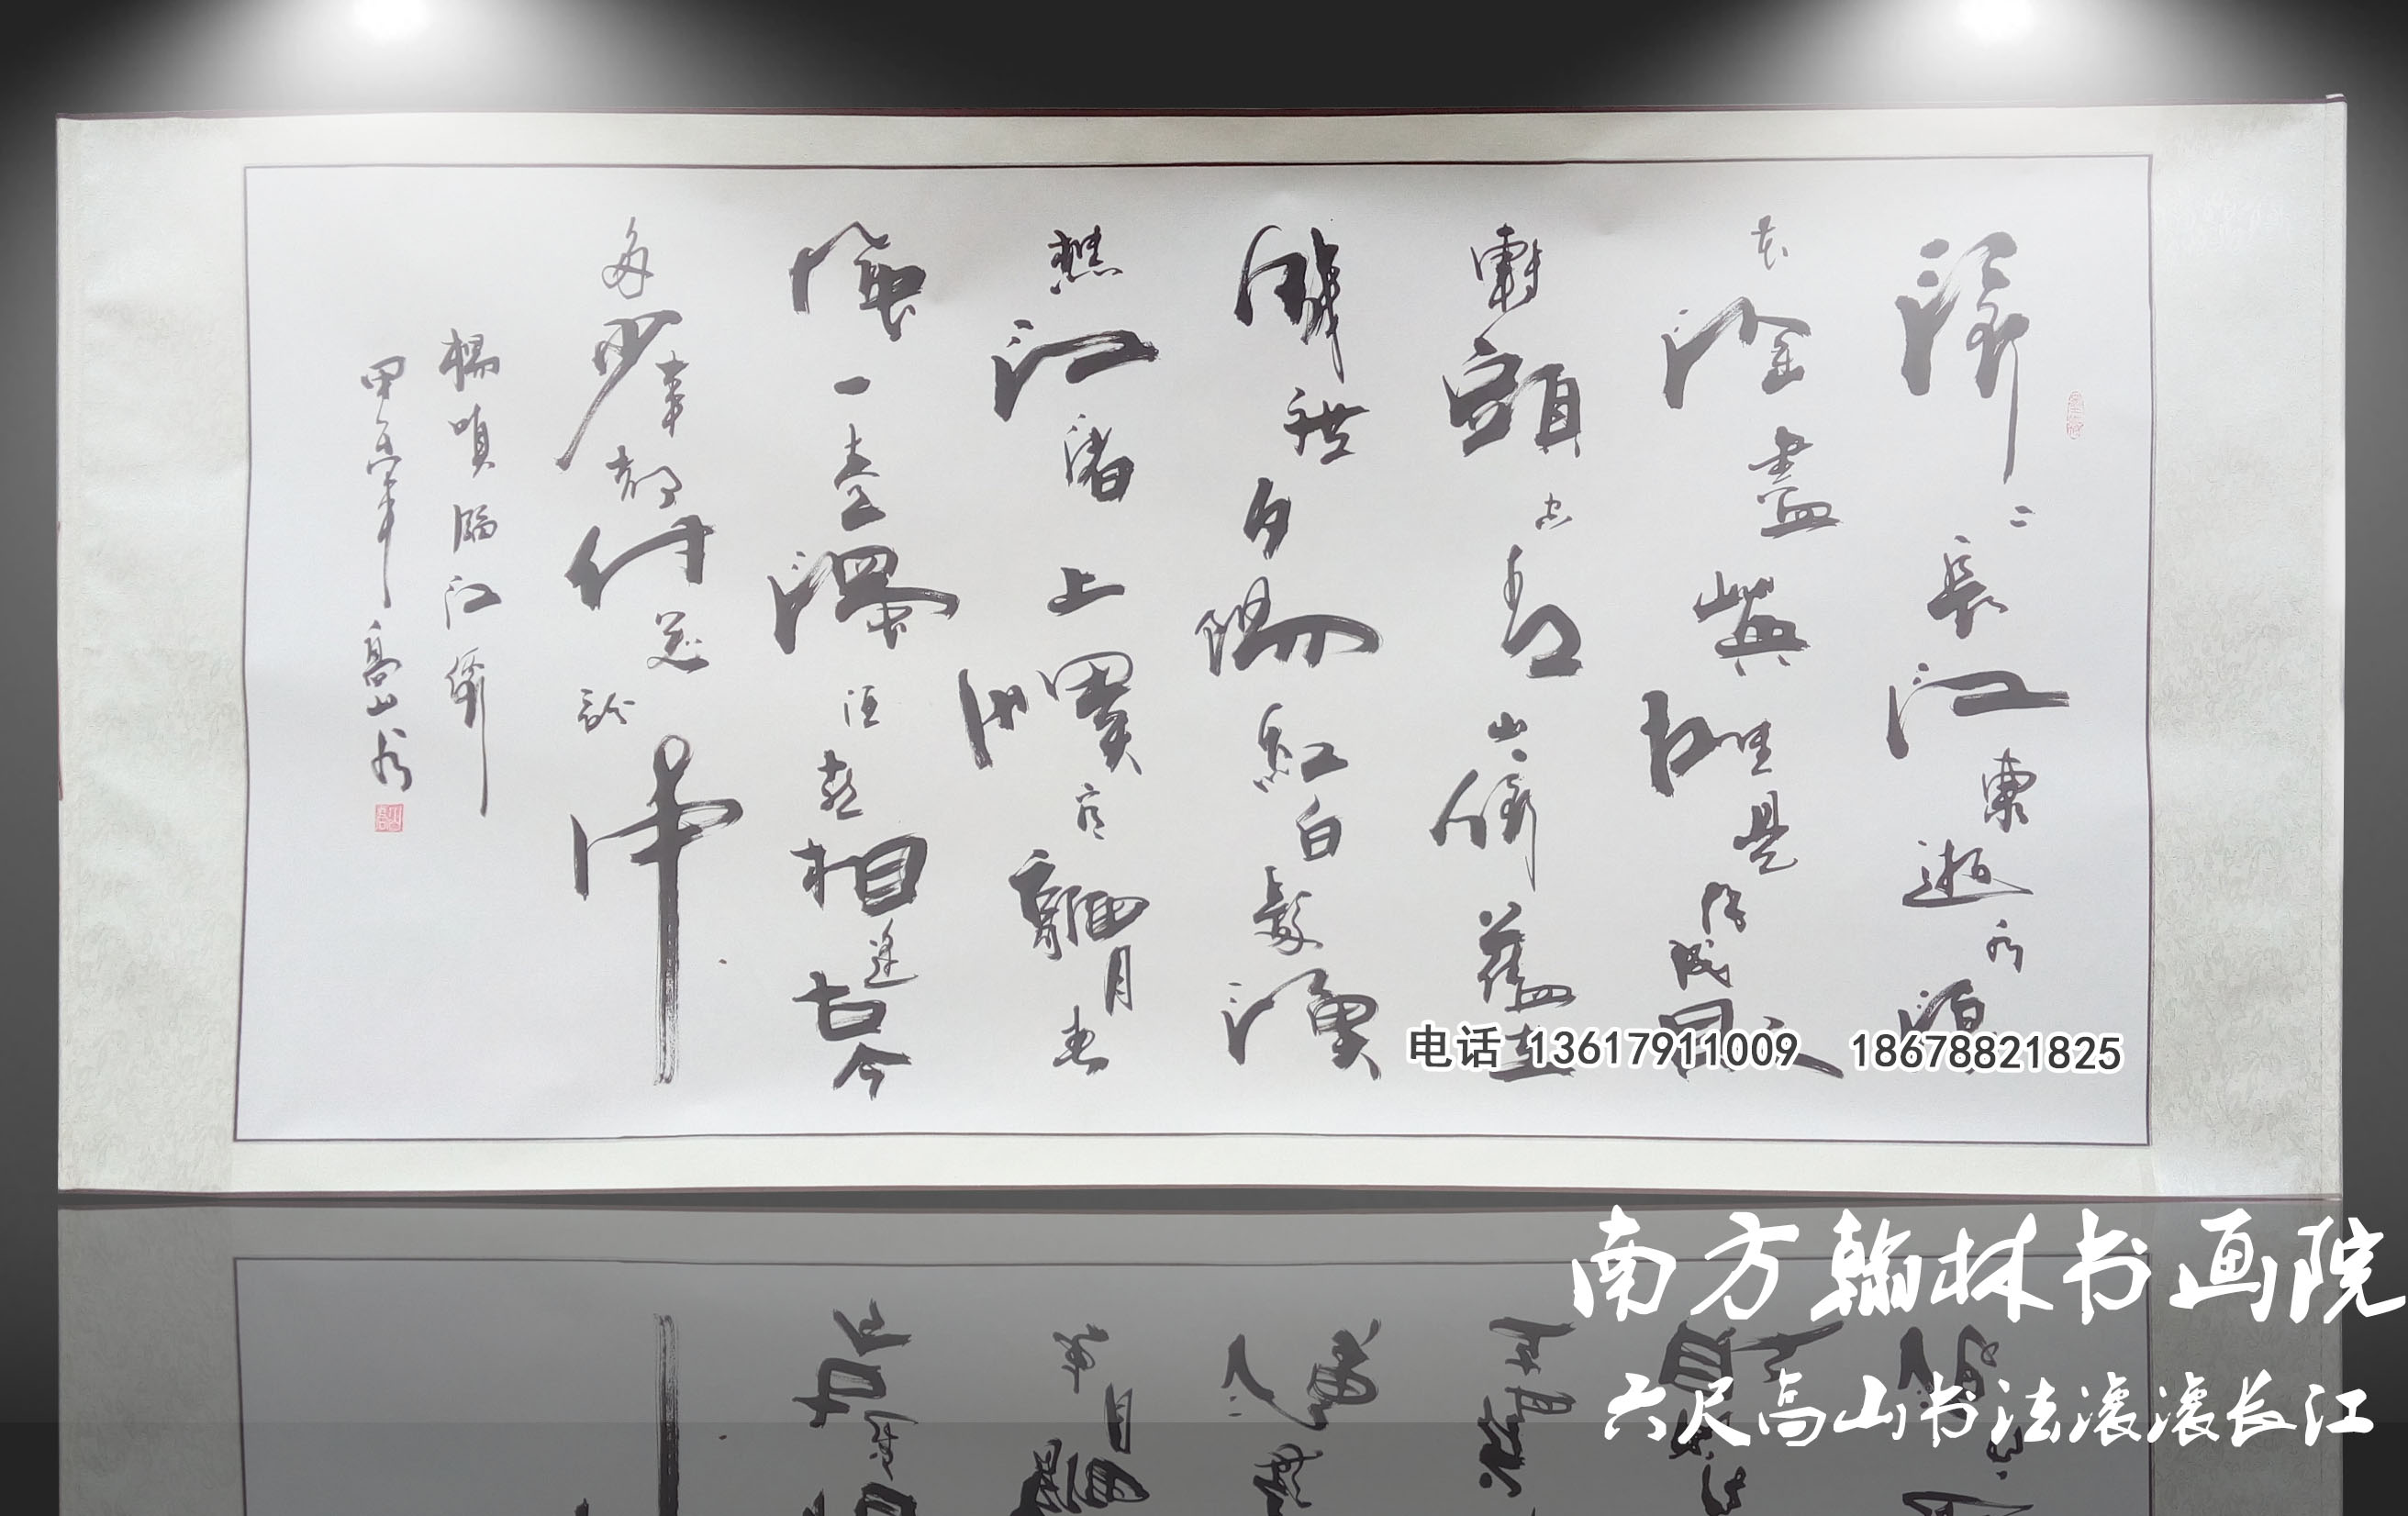 滚滚長江東逝水浪
花淘盡英雄是非成敗
轉頭空青山依舊在
幾度夕陽紅白髮漁
樵江渚上慣看秋月春
風一壺濁酒喜相逢古今
多少事都付笑談中
楊慎臨江仙
甲辰年高山书
电话 13617911009 18678821825
南方翰林书画院
六尺高山书法滚滚长江